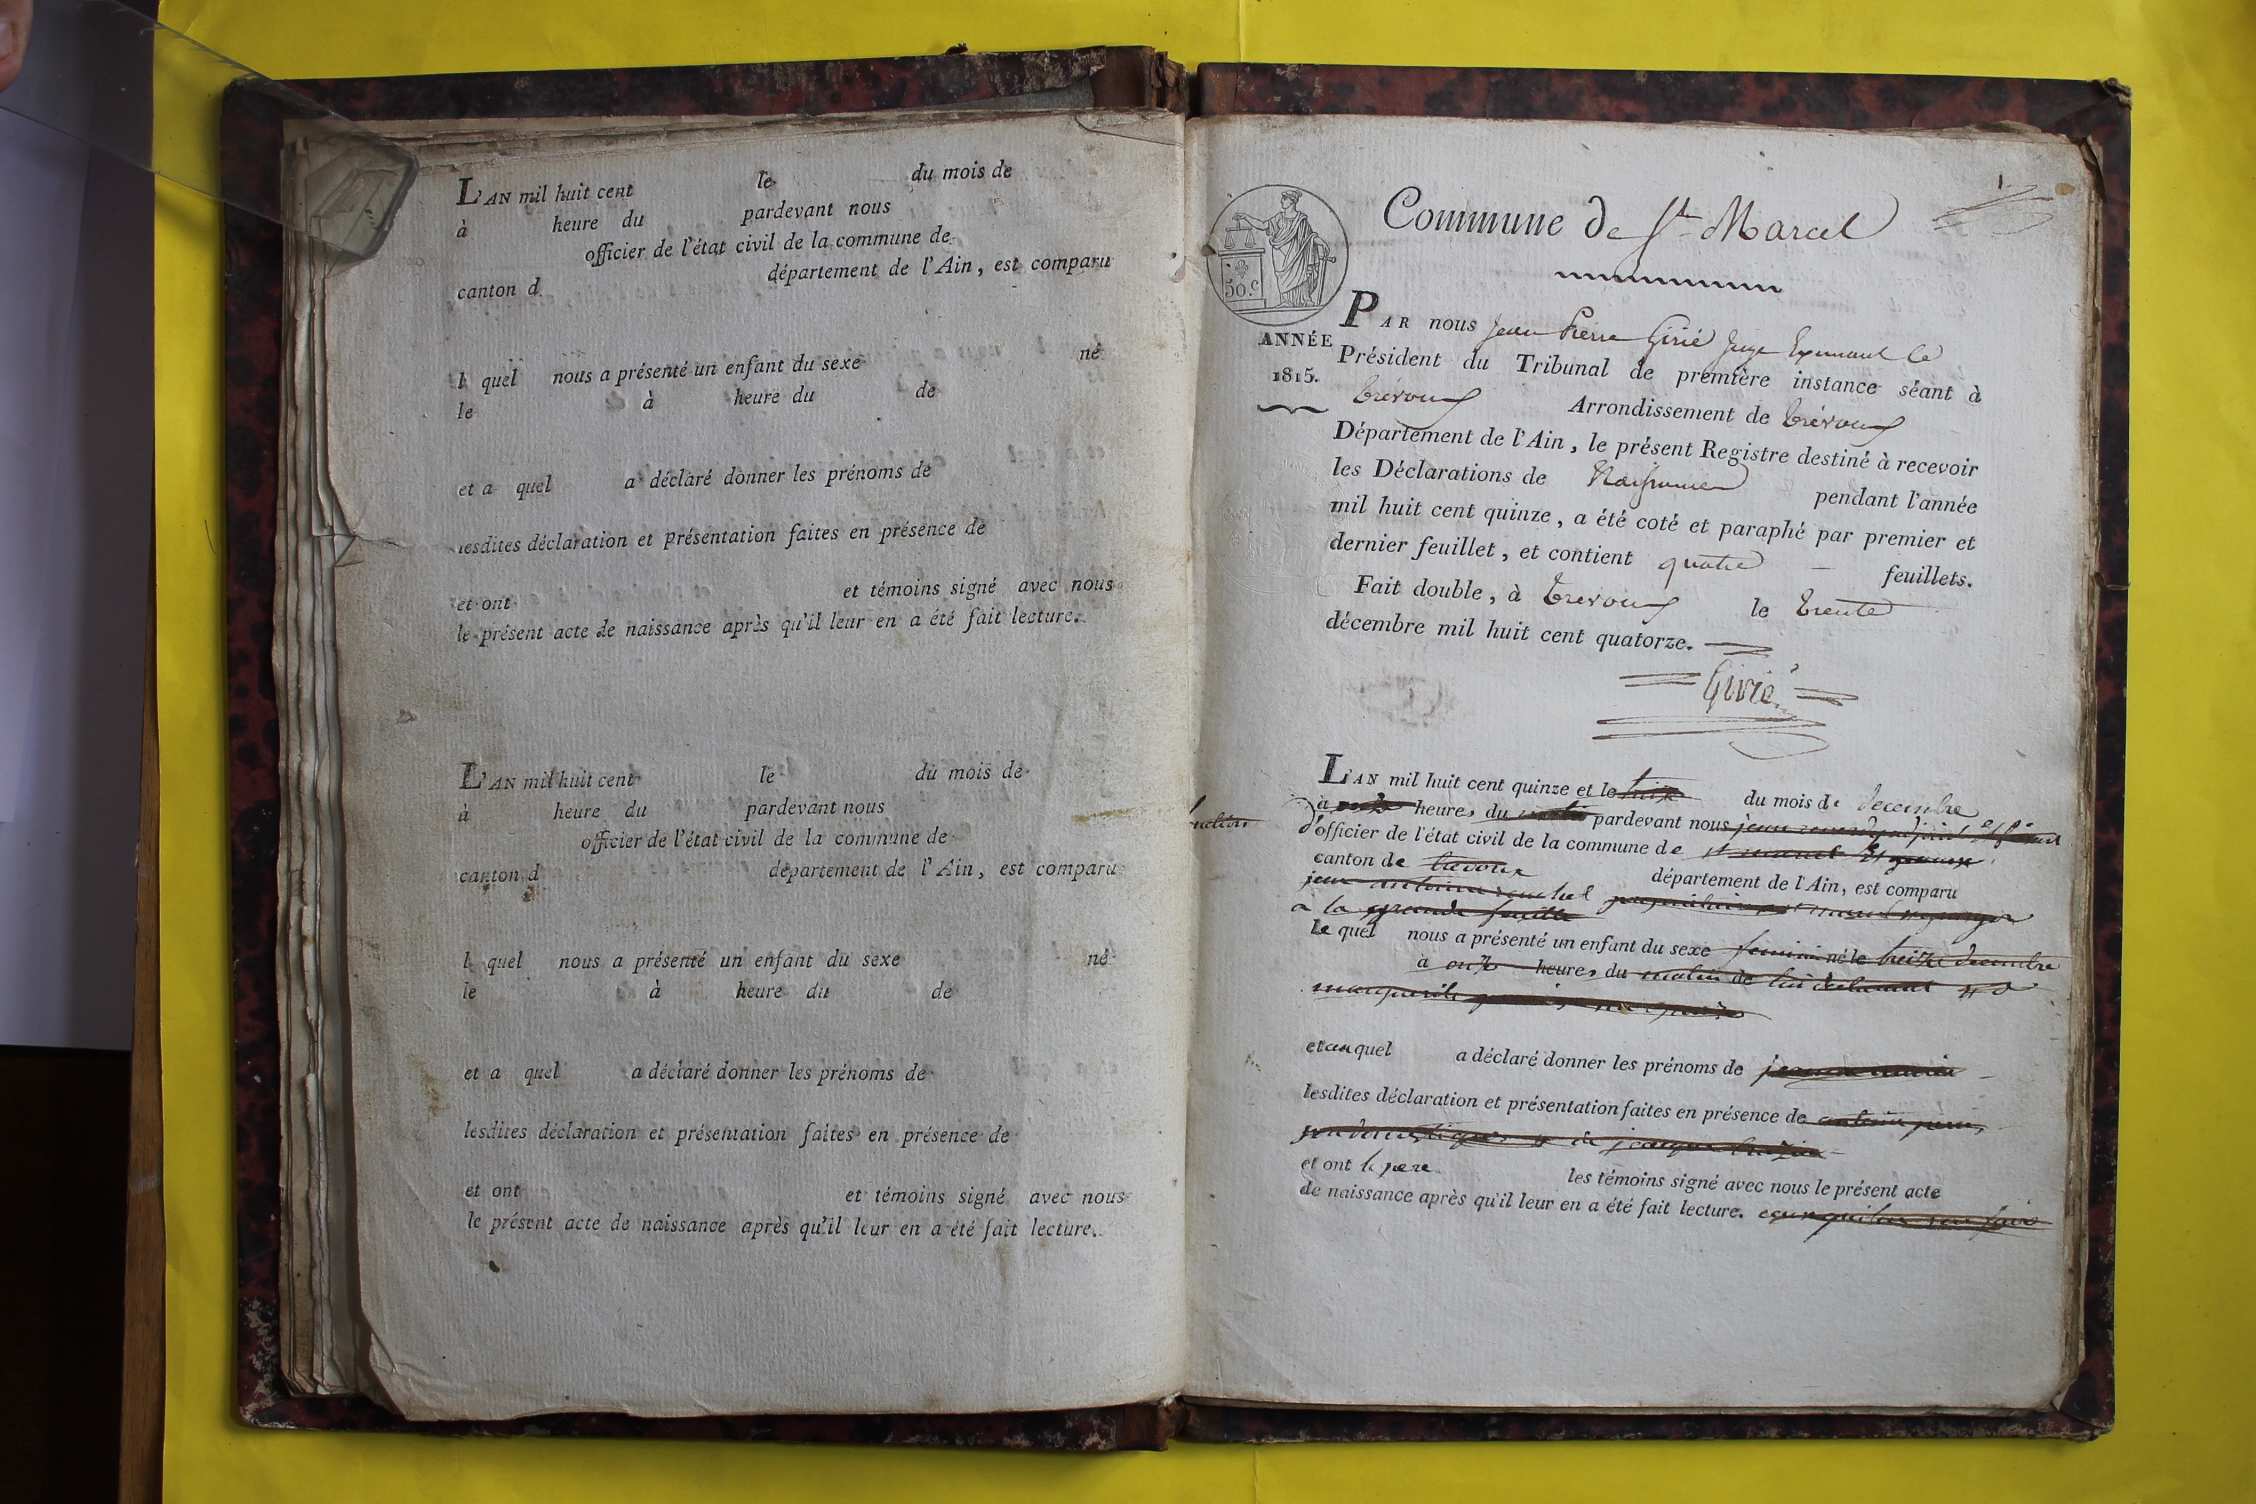 L'AN mil huit cent le du mois de
à heure du pardevant nous
officier de l'état civil de la commune de
canton d département de l'Ain, est comparu
l quel nous a présenté un enfant du sexe né
le à heure du de
et a quel a déclaré donner les prénoms de
lesdites déclaration et présentation faites en présence de
et ont et témoins signé avec nous
le présent acte de naissance après qu'il leur en a été fait lecture.
L'AN mil huit cent le du mois de
à heure du pardevant nous
officier de l'état civil de la commune de
canton d département de l'Ain, est comparu
l quel nous a présenté un enfant du sexe né
le à heure du de
et a quel a déclaré donner les prénoms de
lesdites déclaration et présentation faites en présence de
et ont et témoins signé avec nous
le présent acte de naissance après qu'il leur en a été fait lecture.
Commune de St Marcel
50.c
ANNÉE
1815.
PAR nous Jean Pierre Girié Juge Expriment le
Président du Tribunal de première instance séant à
Trévoux Arrondissement de Trévoux
Département de l'Ain, le présent Registre destiné à recevoir
les Déclarations de Naissance pendant l'année
mil huit cent quinze, a été coté et paraphé par premier et
dernier feuillet, et contient quatre feuillets.
Fait double, à Trevoux le trente
décembre mil huit cent quatorze.
Girié
L'AN mil huit cent quinze et le treize du mois de decembre
à onze heures du matin pardevant nous jean
d'officier de l'état civil de la commune de st marcel
canton de trevoux département de l'Ain, est comparu
jean antoine
a la grande
le quel nous a présenté un enfant du sexe feminin né le treize decembre
à onze heures du matin de lui declarant et d
marguerite
et au quel a déclaré donner les prénoms de
lesdites déclaration et présentation faites en présence de antoine
et ont le pere les témoins signé avec nous le présent acte
de naissance après qu'il leur en a été fait lecture.